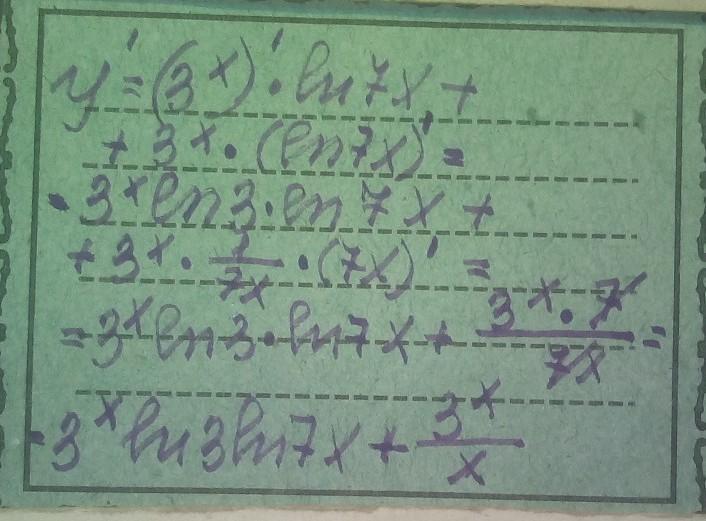 y' = (3^x)' · ln 7x +
+ 3^x · (ln 7x)' =
· 3^x ln 3 · ln 7x +
+ 3^x · 1/7x · (7x)' =
= 3^x ln 3 · ln 7x + 3^x · 7/7x =
- 3^x ln 3 ln 7x + 3^x/x